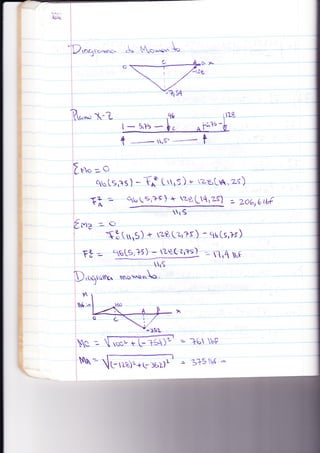 Diagrama de Momento
O C A x
-128
-754
Plano X-Z
96 128
5,75 C A 2,75
11,5
ΣMo = 0
96(5,75) - (11,5) + 128(14,25)
= 96(5,75) + 128(14,25) = 206,6 lbf
11,5
= 0
(11,5) + 128(2,75) - 96(5,75)
= 96(5,75) - 128(2,75) = 17,4 lbf
11,5
Diagrama momento
M
100
O C A x
-352
Mc = √100² + (-754)² = 761 lbf
MA = √(-128)² + (-362)² = 375 lbf.in